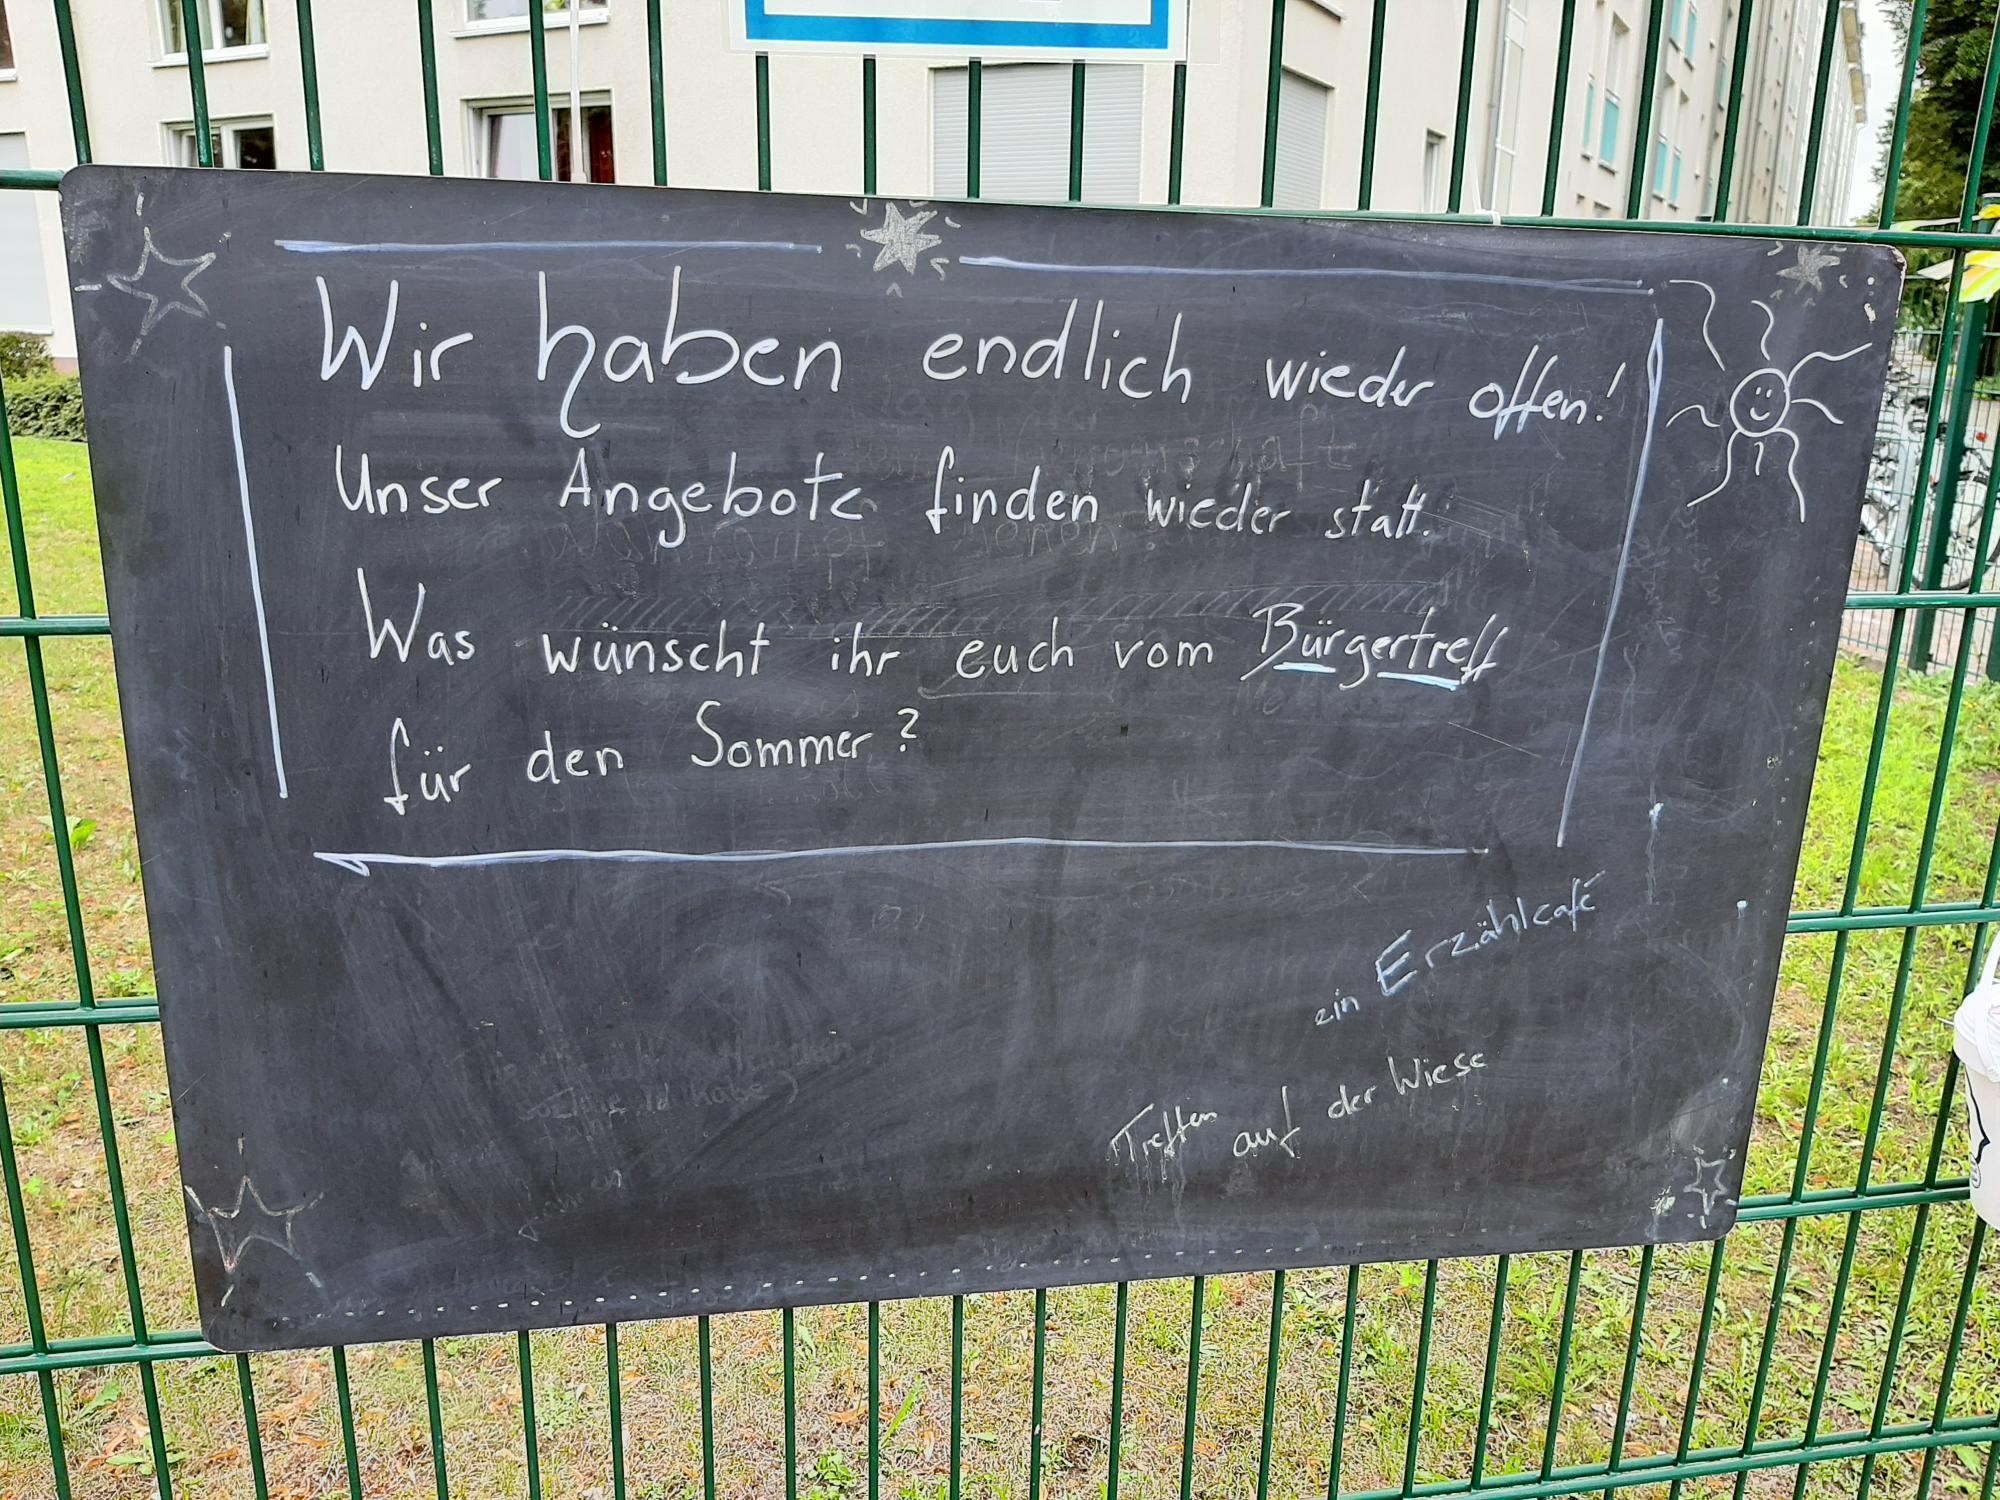 Wir haben endlich wieder offen!
Unser Angebote finden wieder statt.
Was wünscht ihr euch vom Bürgertreff
für den Sommer?
ein Erzählcafé
Treffen auf der Wiese